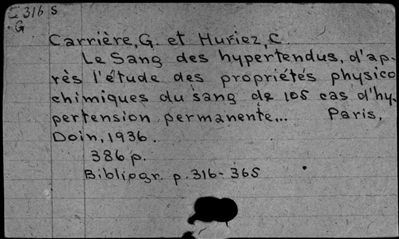 C 316 S
G
Carrière, G. et Huriez, C.
Le Sang des hypertendus, d'ap-
rès l'étude des propriétés physico
chimiques du sang de 105 cas d'hy-
pertension permanente... Paris,
Doin, 1936.
386 p.
Bibliogr. p. 316-365